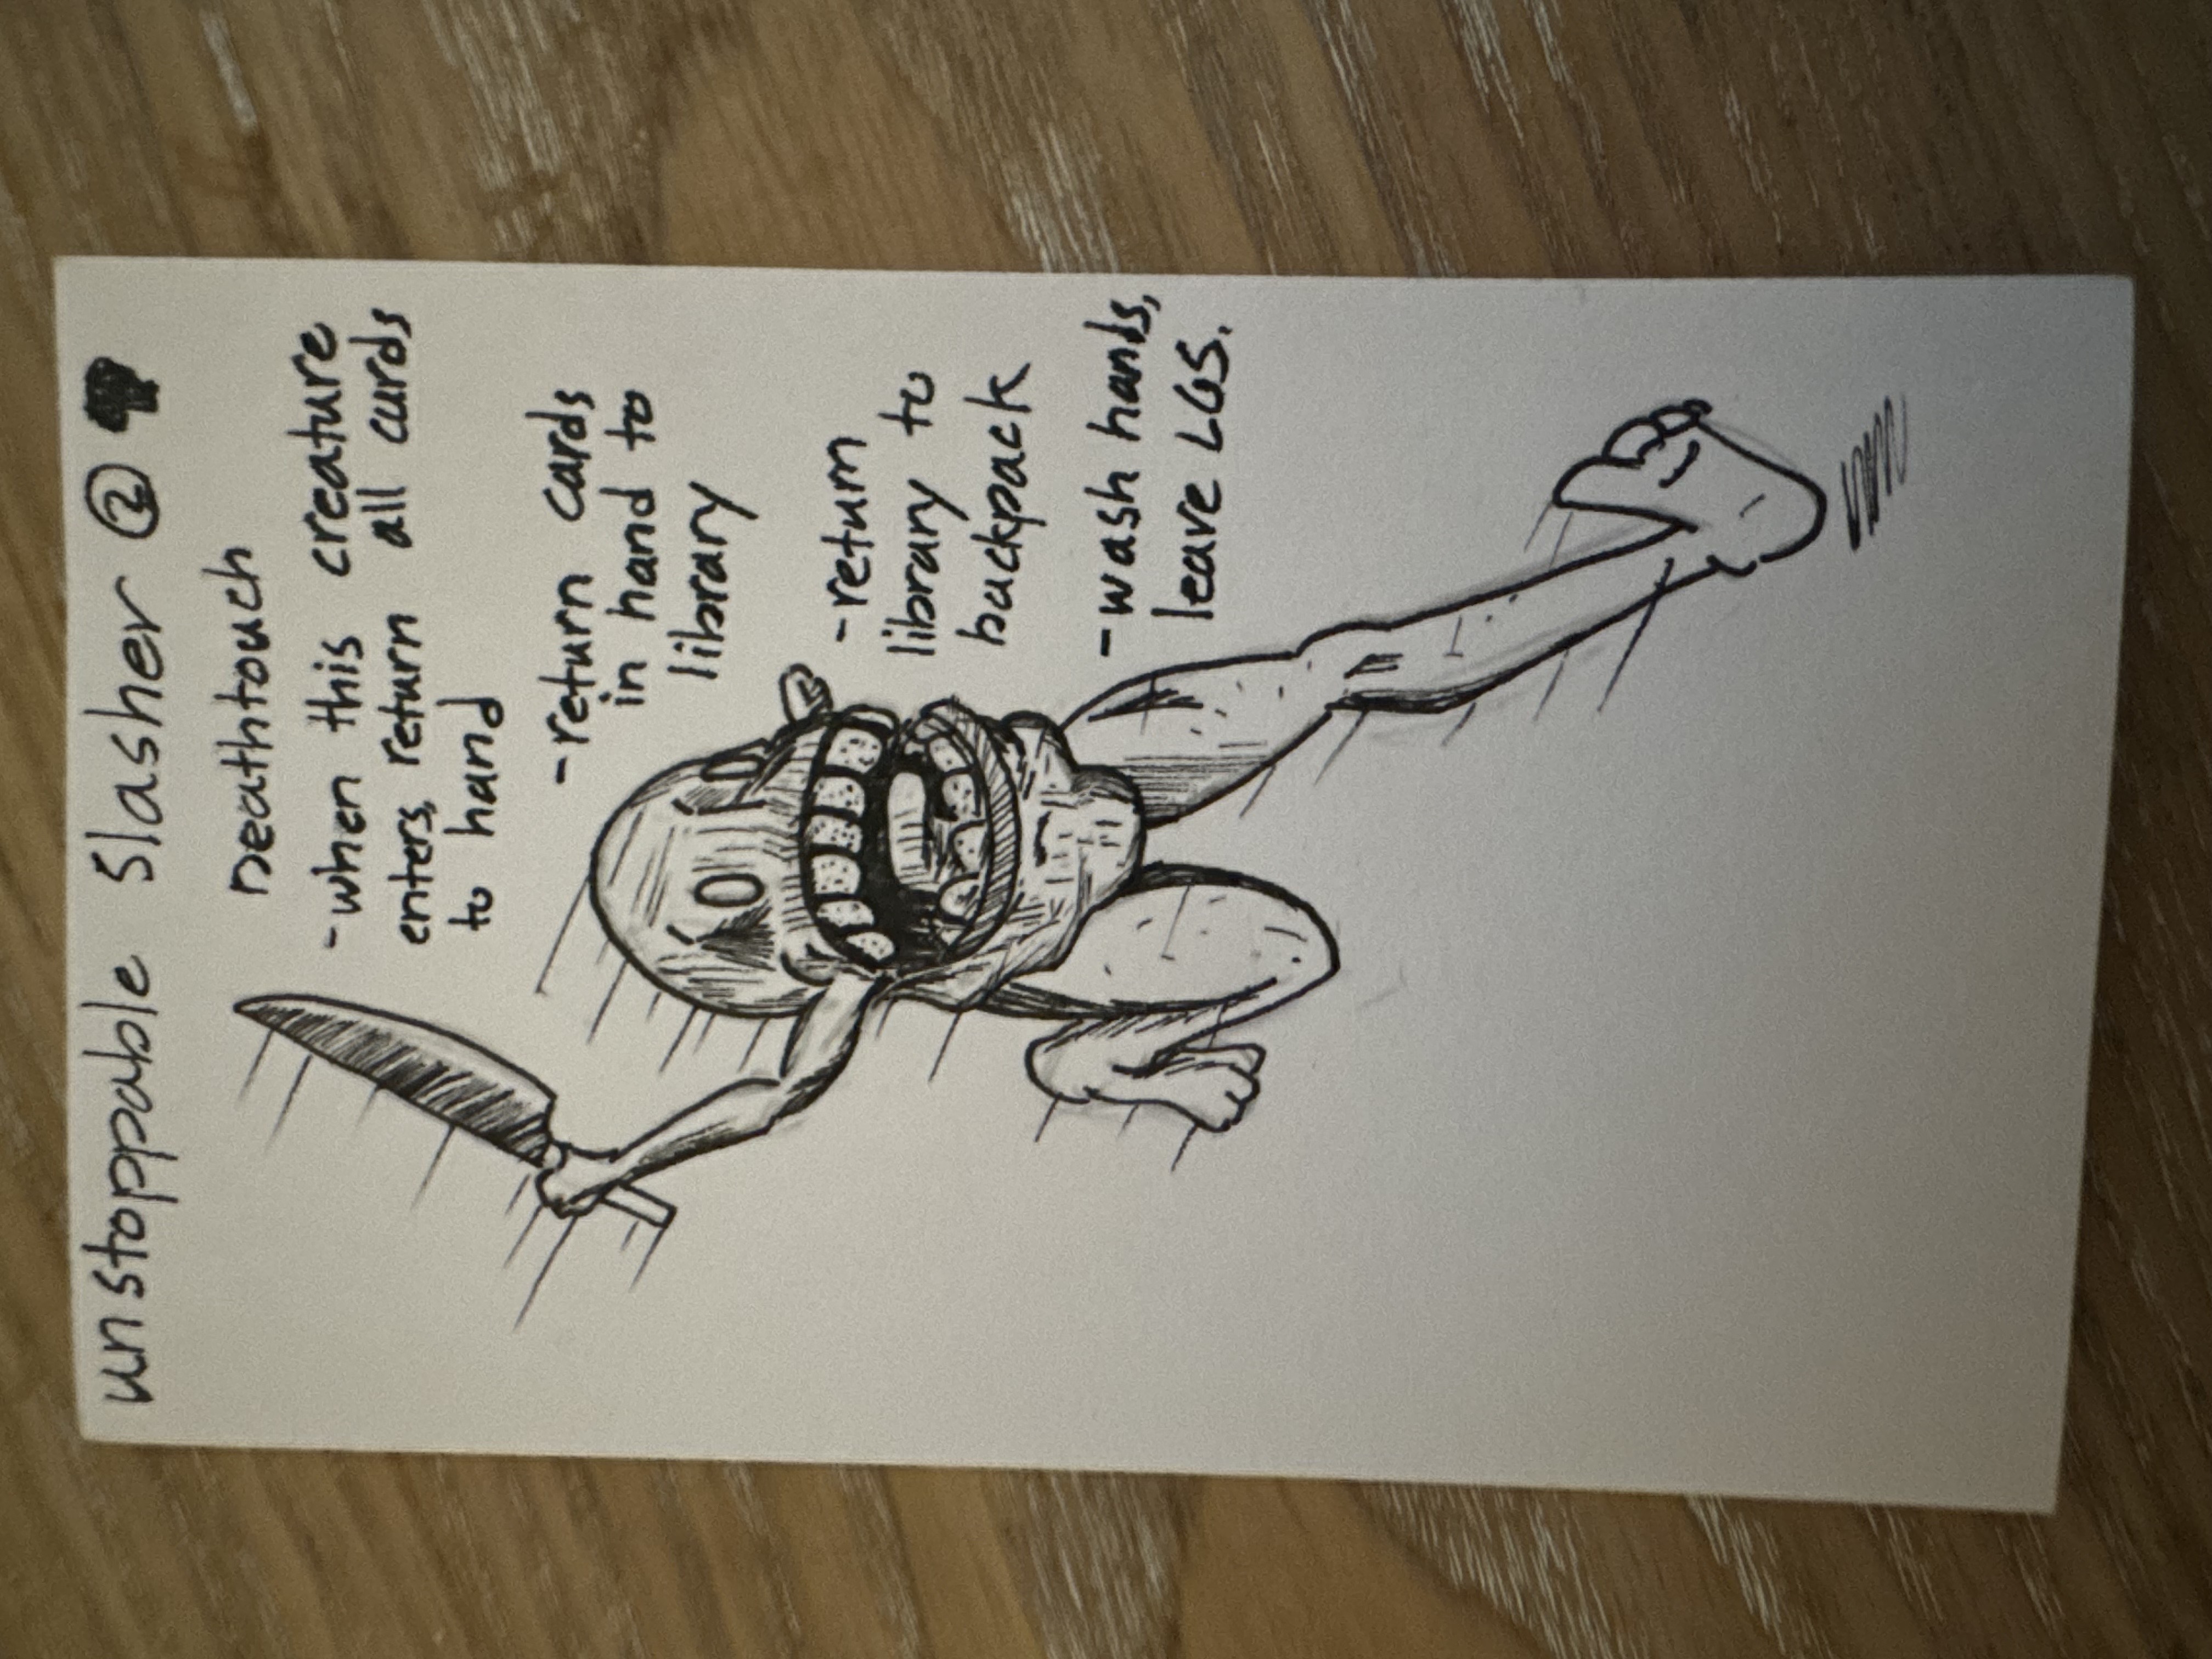 unstoppable Slasher ②
Deathtouch
-when this creature
enters, return all cards
to hand
-return cards
in hand to
library
-return
library to
backpack
-wash hands,
leave LGS.